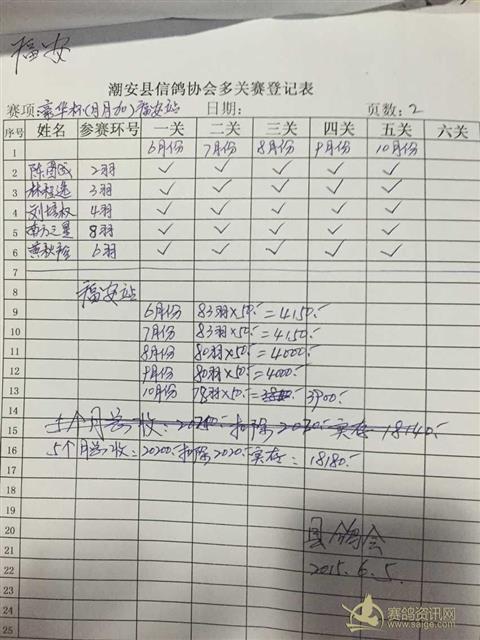 福安
潮安县信鸽协会多关赛登记表
赛项:豪华杯(月月加)福安站 日期: 页数:2
序号 姓名 参赛环号 一关 二关 三关 四关 五关 六关
1 6月份 7月份 8月份 9月份 10月份
2 2羽 ✓ ✓ ✓ ✓ ✓
3 3羽 ✓ ✓ ✓ ✓ ✓
4 4羽 ✓ ✓ ✓ ✓ ✓
5 南方三星 8羽 ✓ ✓ ✓ ✓ ✓
6 6羽 ✓ ✓ ✓ ✓ ✓
7
8 福安站
9 6月份 83羽×50.-=4150.-
10 7月份 83羽×50.-=4150.-
11 8月份 80羽×50.-=4000.-
12 9月份 80羽×50.-=4000.-
13 10月份 78羽×50.-= 3900.-
14
15 5个月总收: 扣除 实存 18140.-
16 5个月总收:20200.-扣除2020.-实存:18180.-
17
18
19
20
21 县鸽会
22 2015.6.5.
23
24
25
赛鸽资讯网
www.saige.com